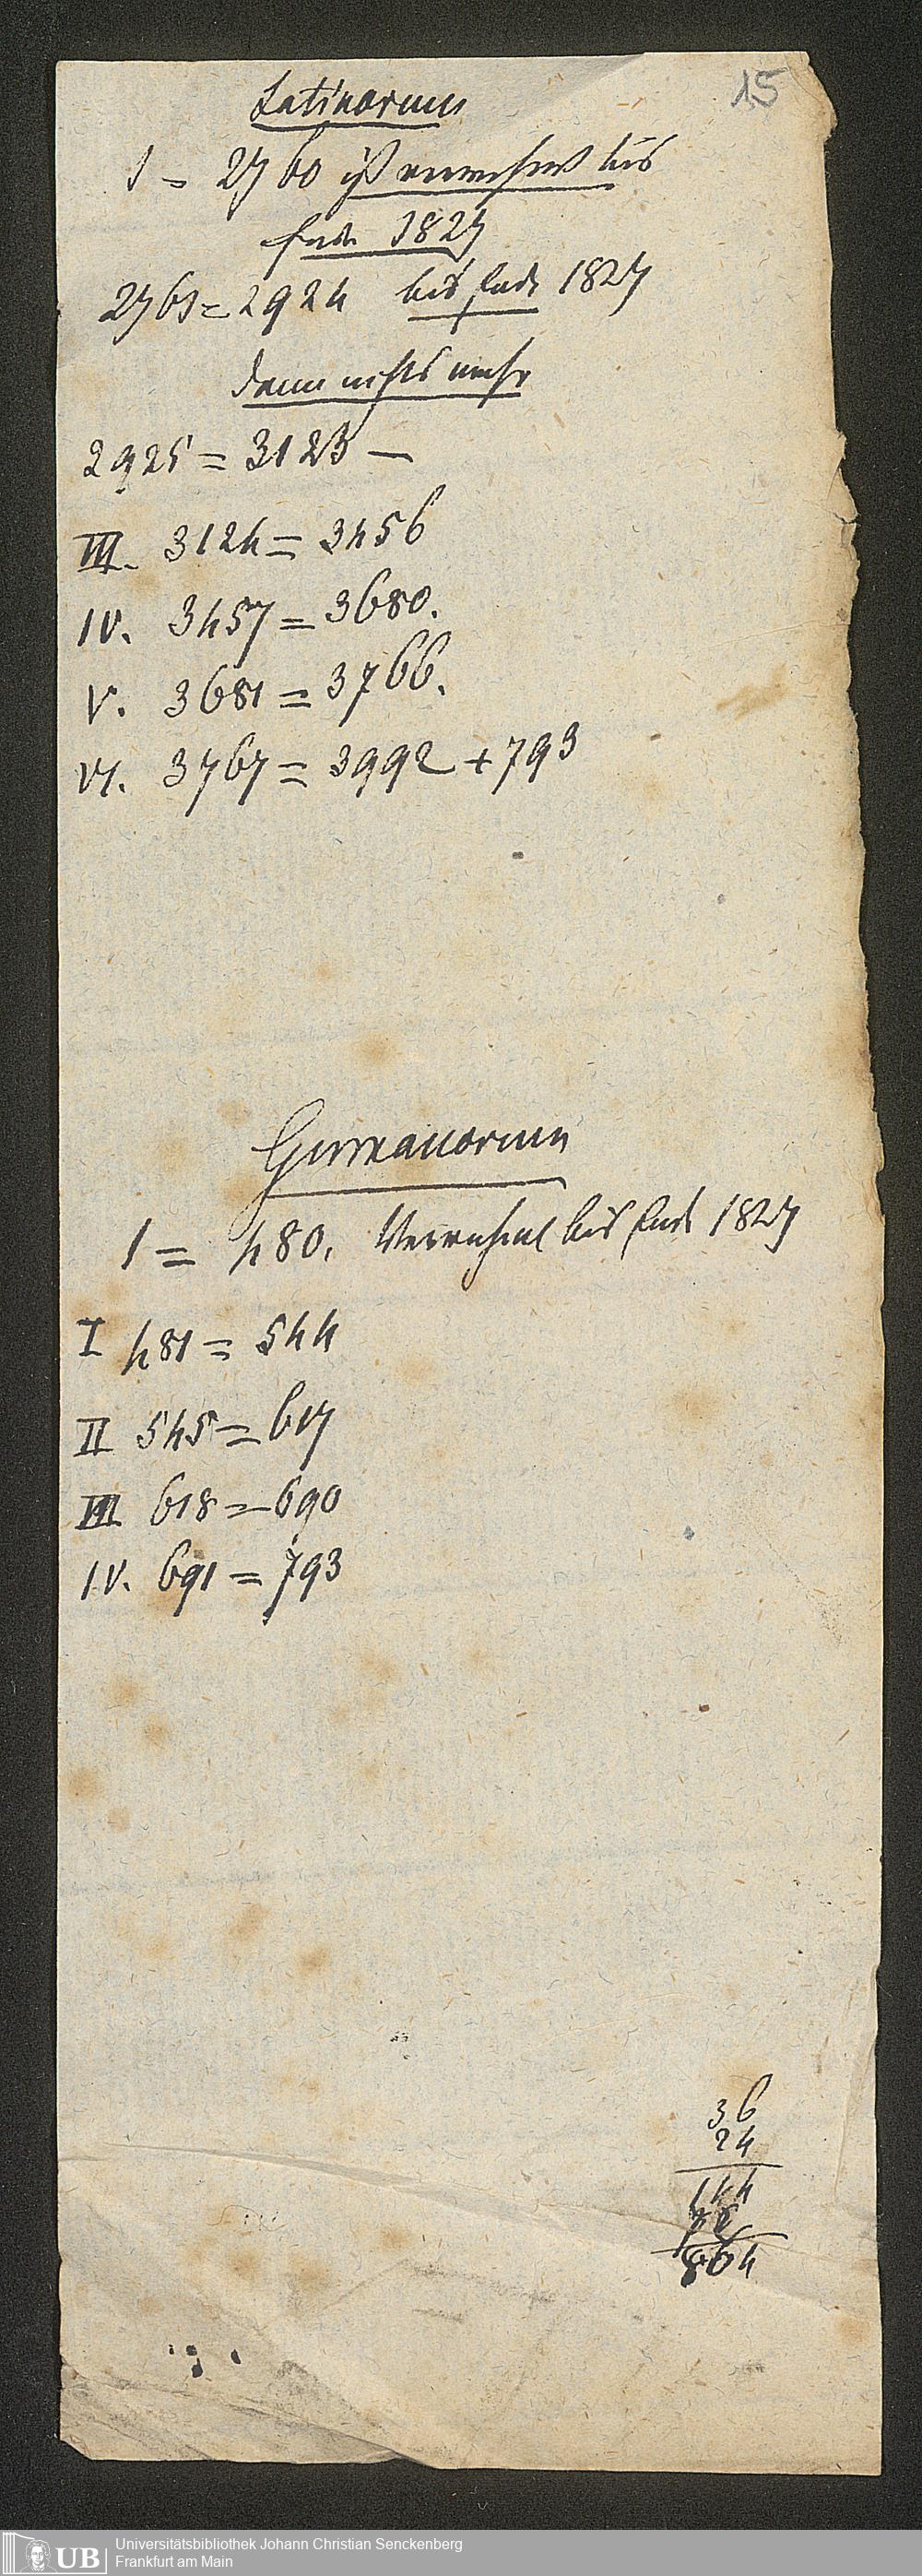 15
Latinorum
1 = 2760 ist verrechnet bis
Ende 1827
2761 = 2924 bis Ende 1827
dann nichts mehr
2925 = 3123 —
III. 3124 = 3456
IV. 3457 = 3680.
V. 3681 = 3766.
VI. 3767 = 3992 + 793
Germanorum
1 = 480. Verrechnet bis Ende 1827
I 481 = 544
II 545 = 617
III 618 = 690
IV. 691 = 793
36
24
144
72
864
UB
Universitätsbibliothek Johann Christian Senckenberg
Frankfurt am Main